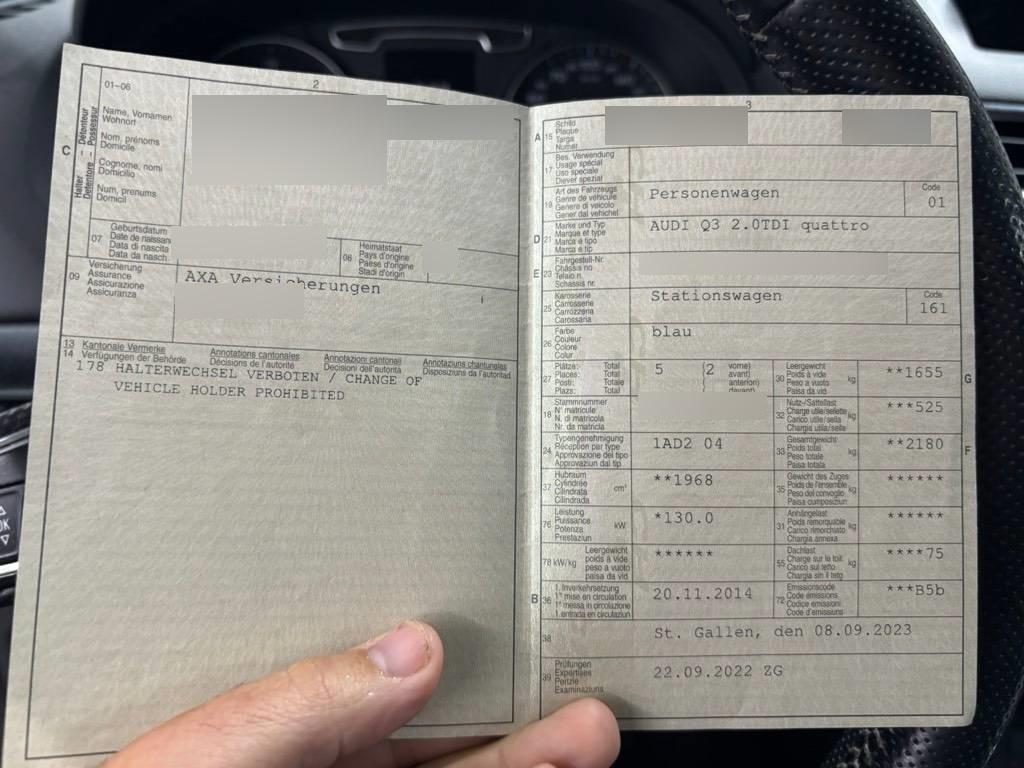 01-06
2
C
Halter - Détenteur
Detentore - Possessur
Name, Vornamen
Wohnort
Nom, prénoms
Domicile
Cognome, nomi
Domicilio
Num, prenums
Domicil
07
Geburtsdatum
Date de naissan
Data di nascita
Data da nasch
08
Heimatstaat
Pays d'origine
Paese d'origine
Stadi d'origin
09
Versicherung
Assurance
Assicurazione
Assicuranza
AXA Versicherungen
13 Kantonale Vermerke
14 Verfügungen der Behörde
Annotations cantonales
Décisions de l'autorité
Annotazioni cantonali
Decisioni dell'autorità
Annotaziuns chantunalas
Disposiziuns da l'autoritad
178 HALTERWECHSEL VERBOTEN / CHANGE OF
VEHICLE HOLDER PROHIBITED
3
A 15
Schild
Plaque
Targa
Numer
17
Bes. Verwendung
Usage spécial
Uso speciale
Diever spezial
19
Art des Fahrzeugs
Genre de véhicule
Genere di veicolo
Gener dal vehichel
Personenwagen
Code
01
D 21
Marke und Typ
Marque et type
Marca e tipo
Marca e tip
AUDI Q3 2.0TDI quattro
E 23
Fahrgestell-Nr.
Châssis no
Telaio n.
Schassis nr.
25
Karosserie
Carrosserie
Carrozzeria
Carossaria
Stationswagen
Code
161
26
Farbe
Couleur
Colore
Colur
blau
27
Plätze: Total
Places: Total
Posti: Totale
Plazs: Total
5 (2 vorne)
avant)
anteriori)
davant)
30
Leergewicht
Poids à vide
Peso a vuoto
Paisa da vid
kg
**1655
G
18
Stammnummer
N° matricule
N. di matricola
Nr. da matricla
32
Nutz-/Sattellast
Charge utile/sellette
Carico utile/sella
Chargia utila/sella
kg
***525
24
Typengenehmigung
Réception par type
Approvazione del tipo
Approvaziun dal tip
1AD2 04
33
Gesamtgewicht
Poids total
Peso totale
Paisa totala
kg
**2180
F
37
Hubraum
Cylindrée
Cilindrata
Cilindrada
cm³
**1968
35
Gewicht des Zuges
Poids de l'ensemble
Peso del convoglio
Paisa cumposiziun
kg
******
76
Leistung
Puissance
Potenza
Prestaziun
kW
*130.0
31
Anhängelast
Poids remorquable
Carico rimorchiato
Chargia annexa
kg
******
78 kW/kg
Leergewicht
poids à vide
peso a vuoto
paisa da vid
******
55
Dachlast
Charge sur le toit
Carico sul tetto
Chargia sin il tetg
kg
****75
B 36
1. Inverkehrsetzung
1re mise en circulation
1a messa in circolazione
1. entrada en circulaziun
20.11.2014
72
Emissionscode
Code émissions
Codice emissioni
Code d'emissiuns
***B5b
38
St. Gallen, den 08.09.2023
39
Prüfungen
Expertises
Perizie
Examinaziuns
22.09.2022 ZG
OK